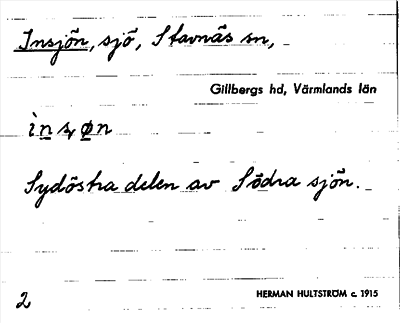 Insjön, sjö, Stavnäs sn,
Gillbergs hd, Värmlands län
Sydöstra delen av Södra sjön.
2
HERMAN HULTSTRÖM c. 1915